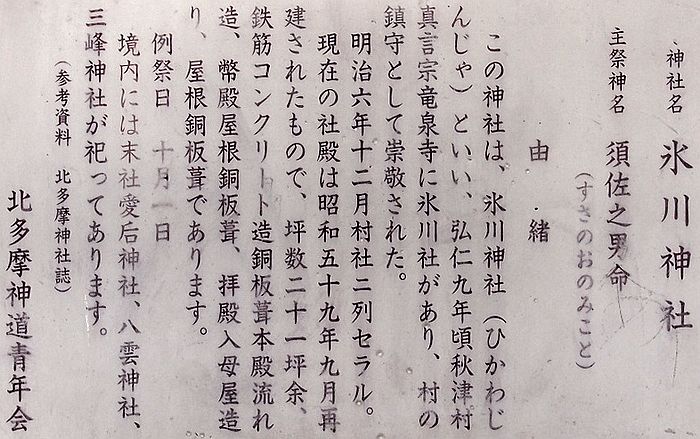 神社名 氷川神社
主祭神名 須佐之男命
(すさのおのみこと)
由緒
この神社は、氷川神社(ひかわじ
んじゃ)といい、弘仁九年頃秋津村
真言宗竜泉寺に氷川社があり、村の
鎮守として崇敬された。
明治六年十二月村社ニ列セラル。
現在の社殿は昭和五十九年九月再
建されたもので、坪数二十一坪余、
鉄筋コンクリート造銅板葺本殿流れ
造、幣殿屋根銅板葺、拝殿入母屋造
り、屋根銅板葺であります。
例祭日 十月一日
境内には末社愛后神社、八雲神社、
三峰神社が祀ってあります。
(参考資料 北多摩神社誌)
北多摩神道青年会